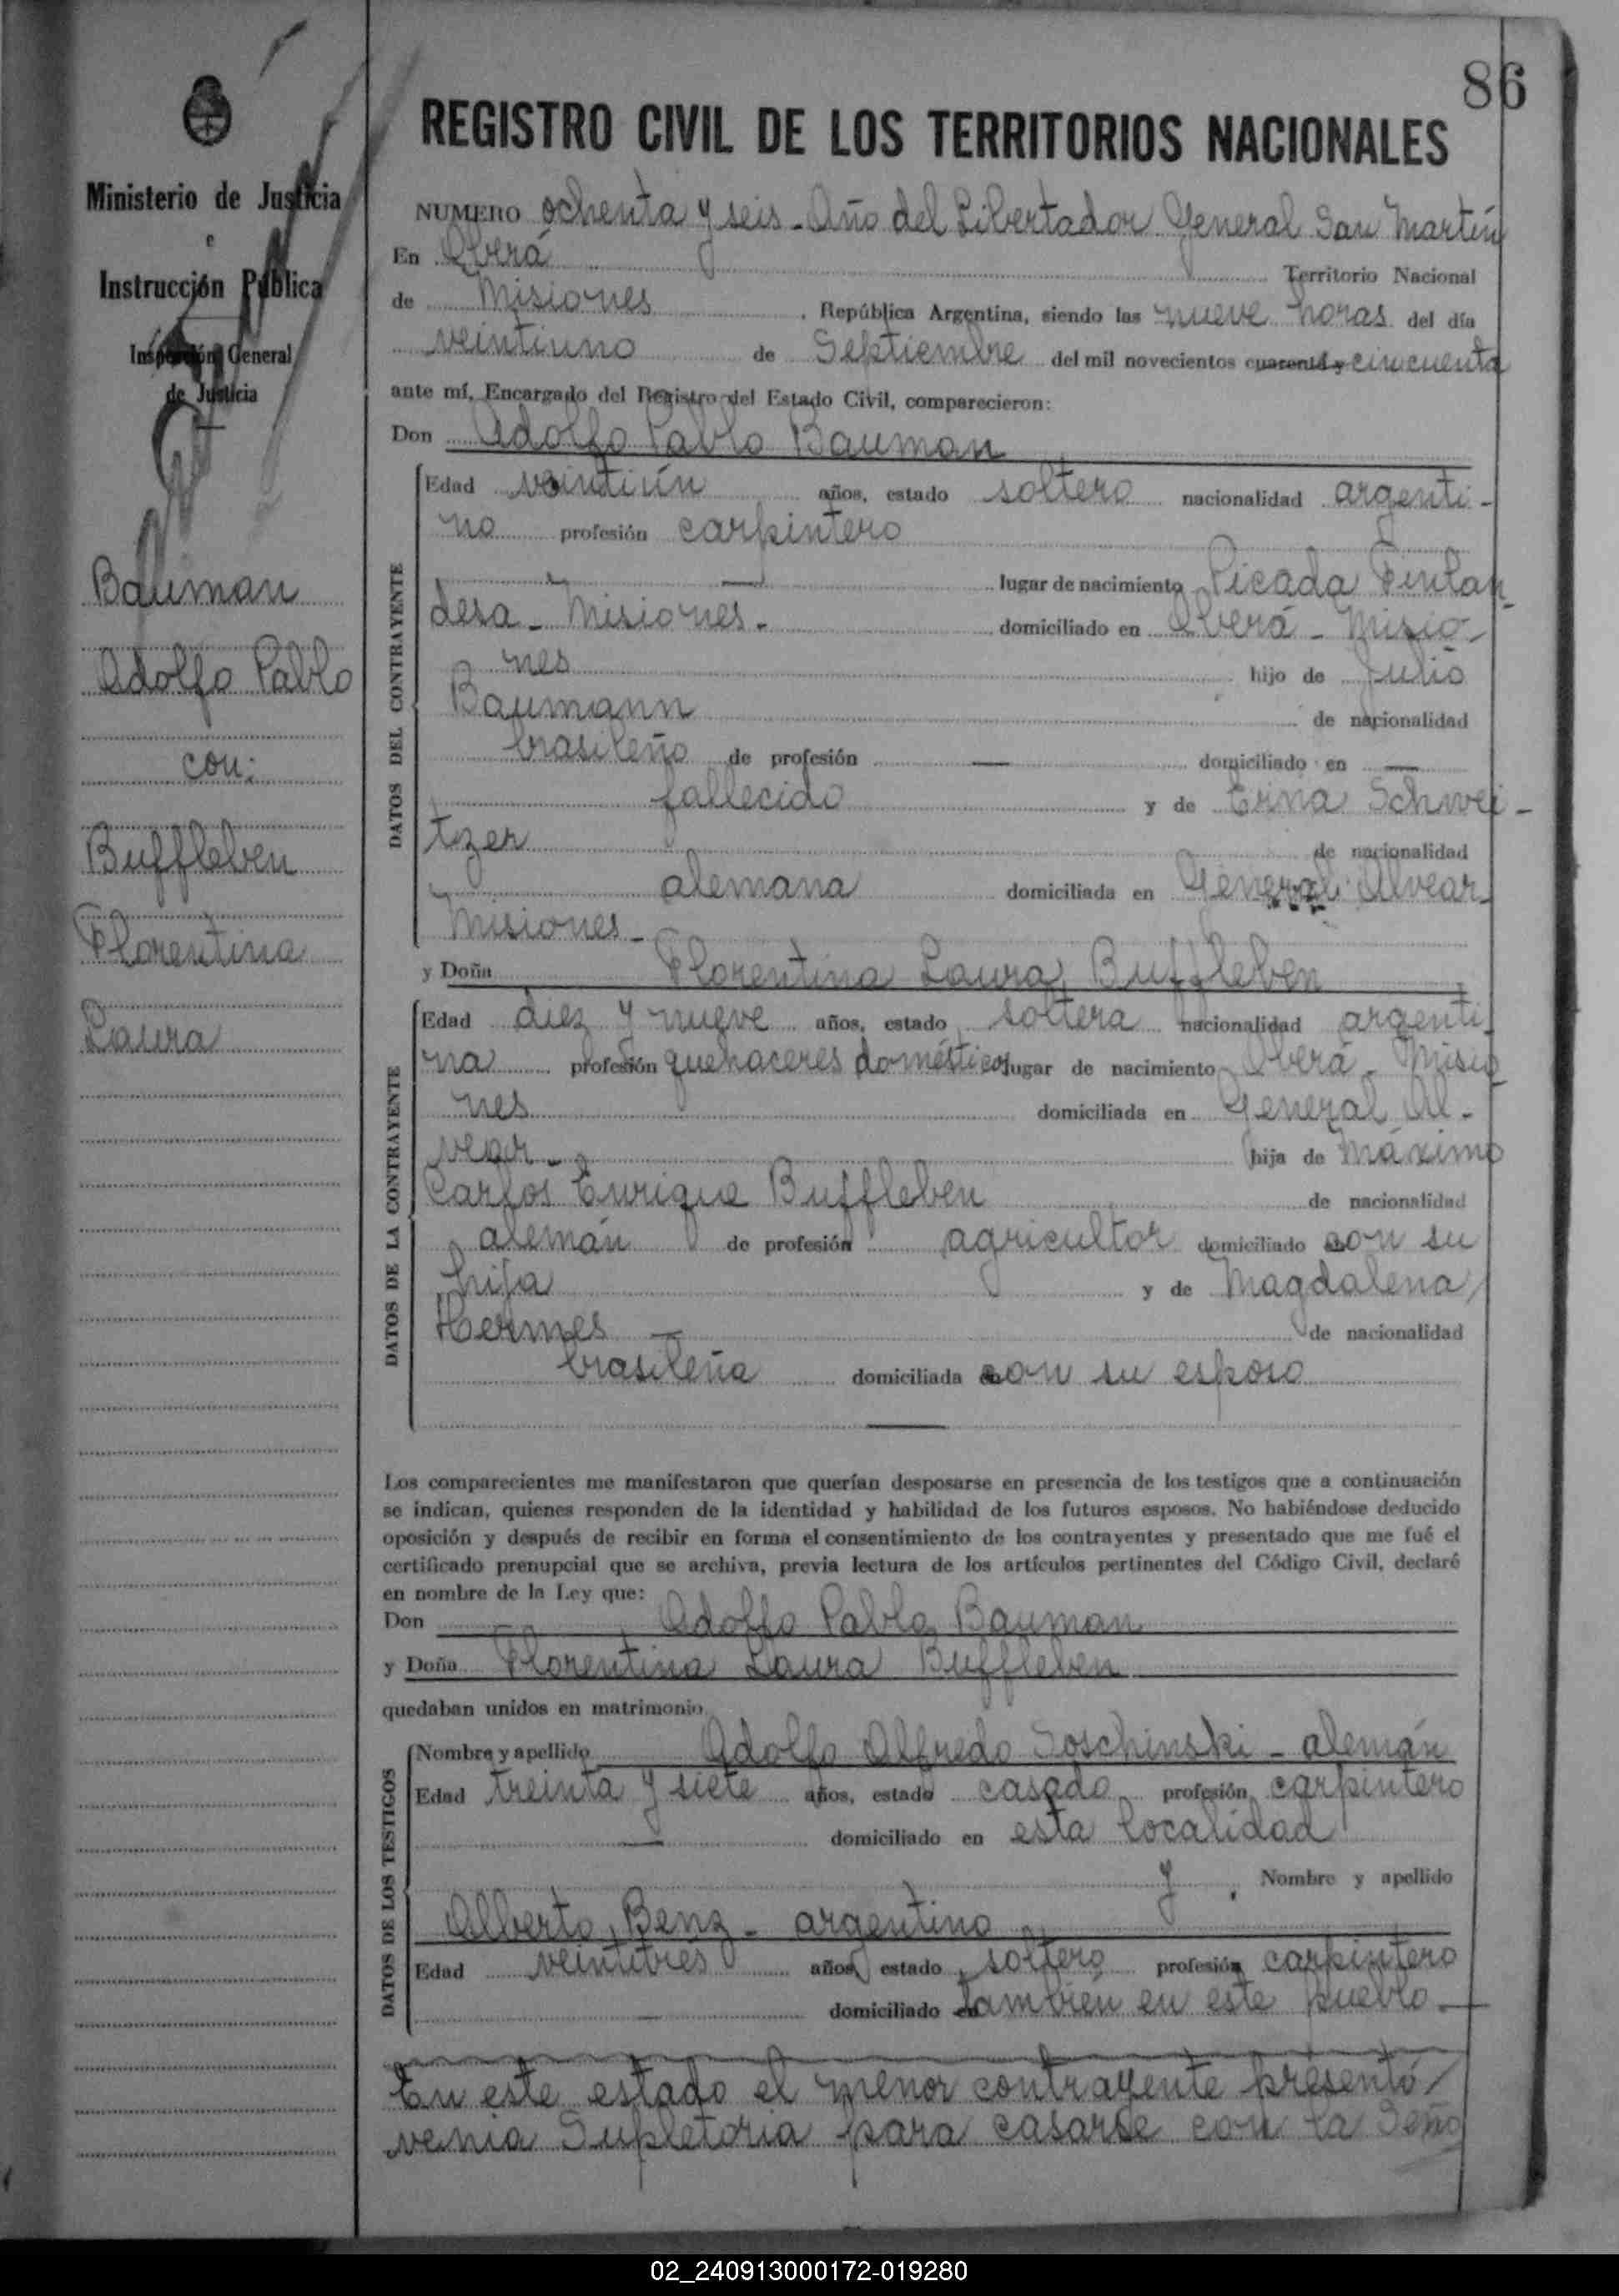 86
REGISTRO CIVIL DE LOS TERRITORIOS NACIONALES
Ministerio de Justicia
e
Instrucción Pública
Inspección General
de Justicia
Bauman
Adolfo Pablo
con:
Buffleben
Florentina
Laura
NUMERO ochenta y seis - Año del Libertador General San Martín
En Oberá Territorio Nacional
de Misiones, República Argentina, siendo las nueve horas del día
veintiuno de Septiembre del mil novecientos cuarenta y cincuenta
ante mí, Encargado del Registro del Estado Civil, comparecieron:
Don Adolfo Pablo Bauman
DATOS DEL CONTRAYENTE
Edad veintiún años, estado soltero nacionalidad argenti-
no profesión carpintero
lugar de nacimiento Picada Finlan-
desa - Misiones - domiciliado en Oberá - Misio-
nes hijo de Julio
Baumann de nacionalidad
brasileño de profesión — domiciliado en —
fallecido y de Erna Schwei-
tzer de nacionalidad
alemana domiciliada en General Alvear-
Misiones -
y Doña Florentina Laura Buffleben
DATOS DE LA CONTRAYENTE
Edad diez y nueve años, estado soltera nacionalidad argenti-
na profesión quehaceres domésticos lugar de nacimiento Oberá - Misio-
nes domiciliada en General Al-
vear - hija de Máximo
Carlos Enrique Buffleben de nacionalidad
alemán de profesión agricultor domiciliado con su
hija y de Magdalena
Hermes — de nacionalidad
brasileña domiciliada con su esposo
Los comparecientes me manifestaron que querían desposarse en presencia de los testigos que a continuación
se indican, quienes responden de la identidad y habilidad de los futuros esposos. No habiéndose deducido
oposición y después de recibir en forma el consentimiento de los contrayentes y presentado que me fué el
certificado prenupcial que se archiva, previa lectura de los artículos pertinentes del Código Civil, declaré
en nombre de la Ley que:
Don Adolfo Pablo Bauman
y Doña Florentina Laura Buffleben
quedaban unidos en matrimonio
DATOS DE LOS TESTIGOS
Nombre y apellido Adolfo Alfredo Soschinski - alemán
Edad treinta y siete años, estado casado profesión carpintero
— domiciliado en esta localidad
y Nombre y apellido
Alberto Benz - argentino
Edad veintitrés años, estado soltero profesión carpintero
— domiciliado en también en este pueblo -
En este estado el menor contrayente presentó
venia Supletoria para casarse con la Seño
02_240913000172-019280